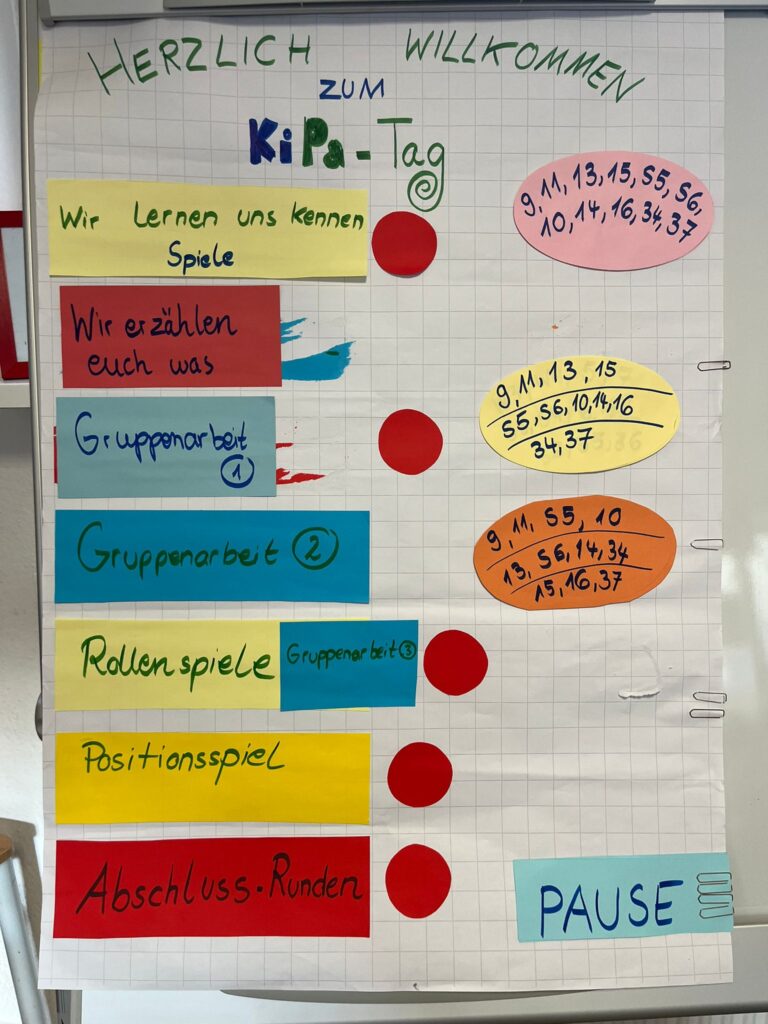 HERZLICH WILLKOMMEN
ZUM
KiPa-Tag
Wir Lernen uns kennen
Spiele
9, 11, 13, 15, S5, S6,
10, 14, 16, 34, 37
Wir erzählen
euch was
Gruppenarbeit
1
9, 11, 13, 15
S5, S6, 10, 14, 16
34, 37
Gruppenarbeit 2
9, 11, S5, 10
13, S6, 14, 34
15, 16, 37
Rollenspiele
Gruppenarbeit 3
Positionsspiel
Abschluss-Runden
PAUSE